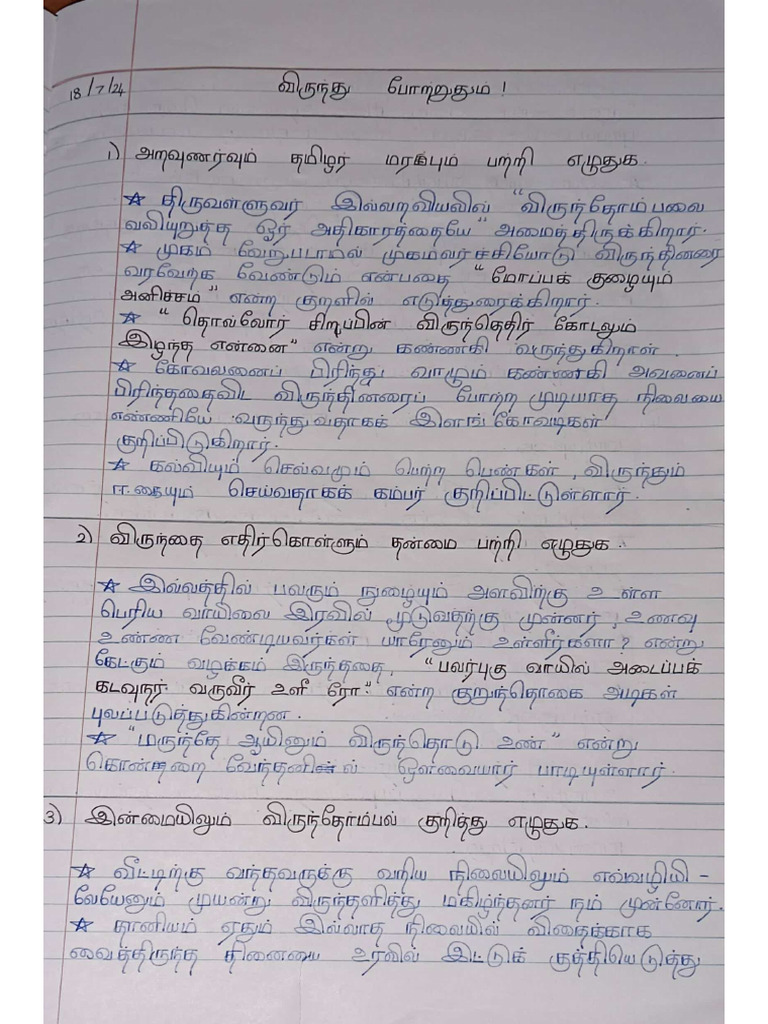 18/7/24
விருந்து போற்றுதும் !
1) அறவுணர்வும் தமிழர் மரபும் பற்றி எழுதுக.
☆ திருவள்ளுவர் இல்லறவியலில் "விருந்தோம்பலை
வலியுறுத்த ஓர் அதிகாரத்தையே" அமைத்திருக்கிறார்.
☆ முகம் வேறுபடாமல் முகமலர்ச்சியோடு விருந்தினரை
வரவேற்க வேண்டும் என்பதை "மோப்பக் குழையும்
அனிச்சம்" என்ற குறளில் எடுத்துரைக்கிறார்.
☆ "தொல்லோர் சிறப்பின் விருந்தெதிர் கோடலும்
இழந்த என்னை" என்று கண்ணகி வருந்துகிறாள்.
☆ கோவலனைப் பிரிந்து வாழும் கண்ணகி அவனைப்
பிரிந்ததைவிட விருந்தினரைப் போற்ற முடியாத நிலையை
எண்ணியே வருந்துவதாகக் இளங்கோவடிகள்
குறிப்பிடுகிறார்.
☆ கல்வியும் செல்வமும் பெற்ற பெண்கள், விருந்தும்
ஈகையும் செய்வதாகக் கம்பர் குறிப்பிட்டுள்ளார்.
2) விருந்தை எதிர்கொள்ளும் தன்மை பற்றி எழுதுக.
☆ இல்லத்தில் பலரும் நுழையும் அளவிற்கு உள்ள
பெரிய வாயிலை இரவில் மூடுவதற்கு முன்னர், உணவு
உண்ண வேண்டியவர்கள் யாரேனும் உள்ளீர்களா? என்று
கேட்கும் வழக்கம் இருந்ததை, "பலர்புகு வாயில் அடைப்பக்
கடவுநர் வருவீர் உளீ ரோ." என்ற குறுந்தொகை அடிகள்
புலப்படுத்துகின்றன.
☆ "மருந்தே ஆயினும் விருந்தொடு உண்" என்று
கொன்றை வேந்தனில் ஔவையார் பாடியுள்ளார்.
3) இன்மையிலும் விருந்தோம்பல் குறித்து எழுதுக.
☆ வீட்டிற்கு வந்தவருக்கு வறிய நிலையிலும் எவ்வழியி -
லேயேனும் முயன்று விருந்தளித்து மகிழ்ந்தனர் நம் முன்னோர்.
☆ தானியம் ஏதும் இல்லாத நிலையில் விதைக்காக
வைத்திருந்த தினையை உரலில் இட்டுக் குத்தியெடுத்து